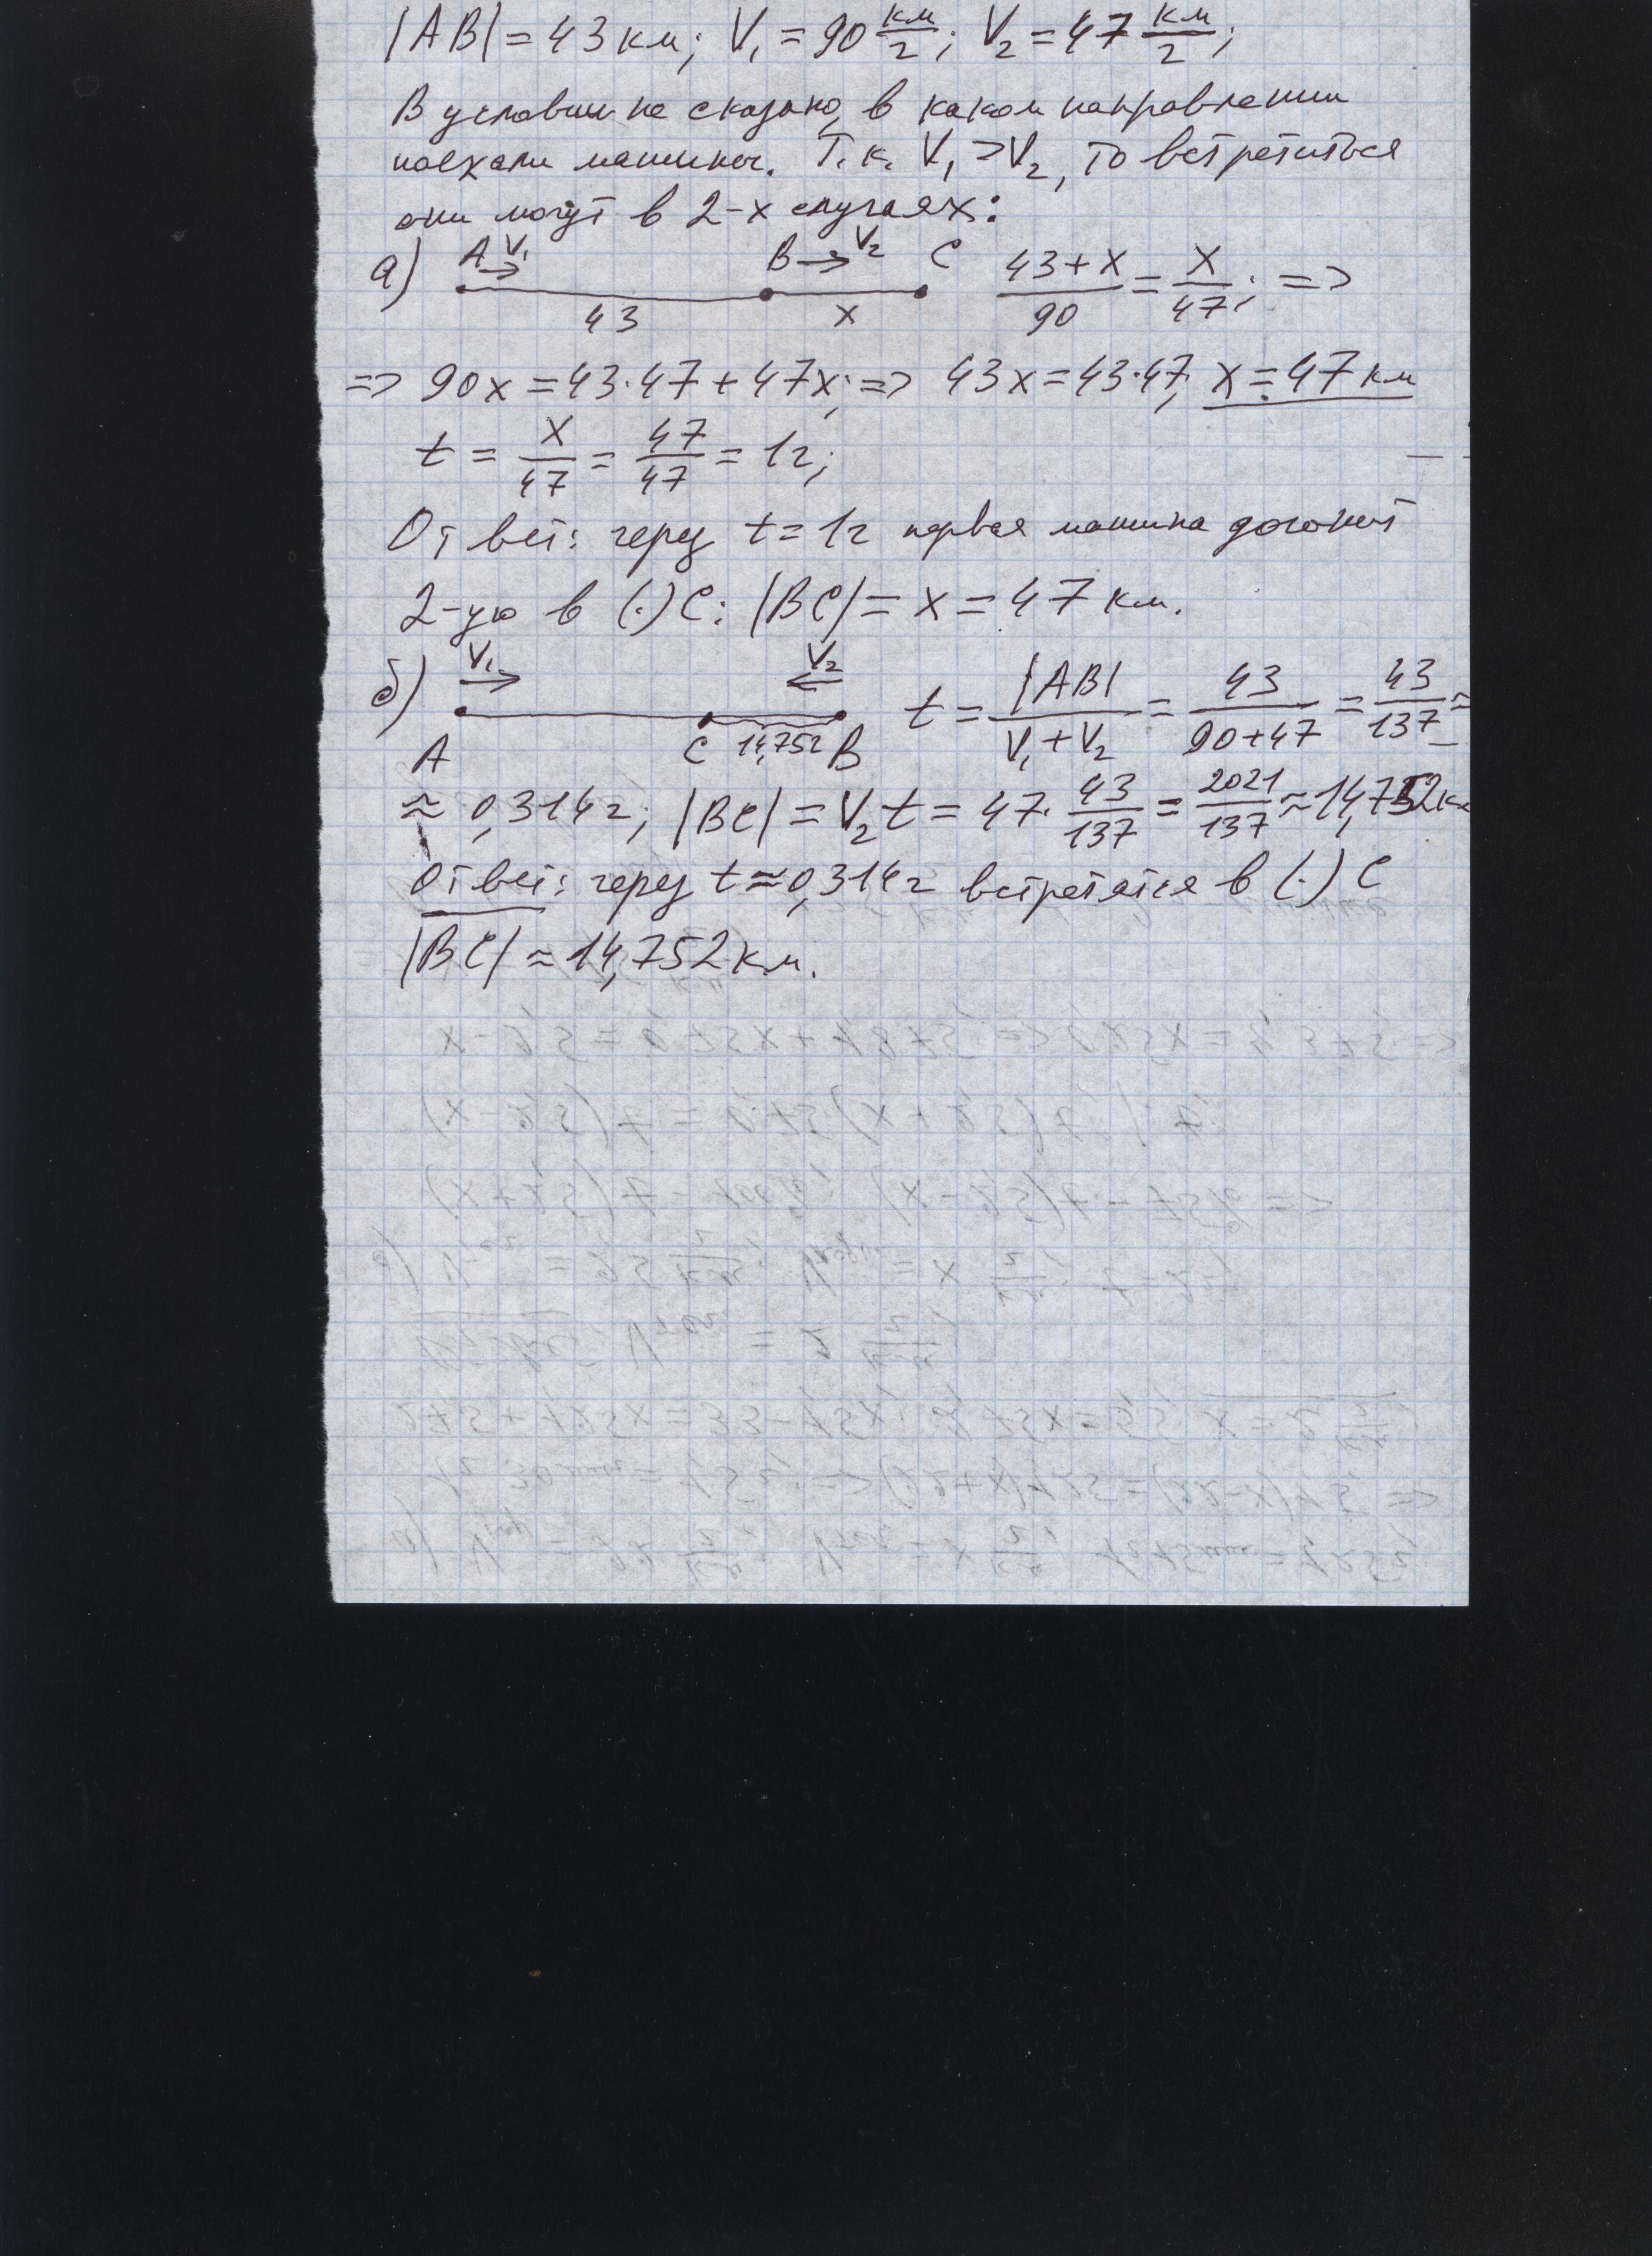 |AB| = 43 км; V₁ = 90 км/г; V₂ = 47 км/г;
В условии не сказано, в каком направлении
поехали машины. Т.к. V₁ > V₂, то встретиться
они могут в 2-х случаях:
а) A V₁ → B → V₂ C (43+x)/90 = x/47; =>
43 x
=> 90x = 43·47 + 47x; => 43x = 43·47; x = 47 км
t = x/47 = 47/47 = 1г;
Ответ: через t = 1г первая машина догонит
2-ую в (·) C: |BC| = x = 47 км.
б) V₁ → V₂ ← t = |AB|/(V₁+V₂) = 43/(90+47) = 43/137 ≈
A C 14,752 B
≈ 0,314г; |BC| = V₂t = 47·43/137 = 2021/137 ≈ 14,752км
Ответ: через t ≈ 0,314г встретятся в (·) C
|BC| ≈ 14,752 км.